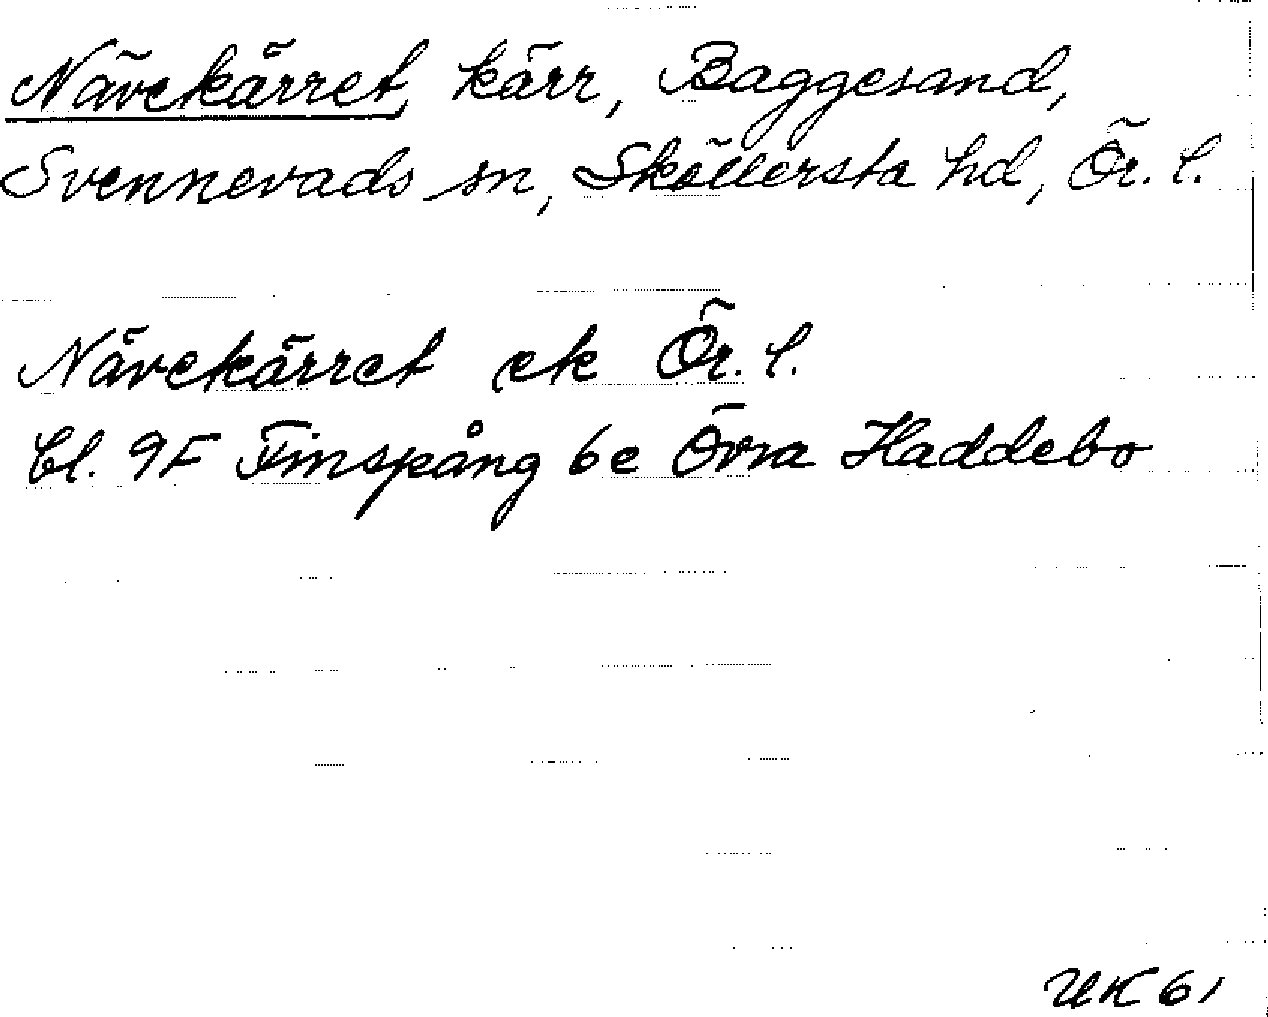 Nävekärret, kärr, Baggesand,
Svennevads sn, Sköllersta hd, Ör. l.
Nävekärret ek Ör. l.
bl. 9F Finspång 6e Övra Haddebo
UK 61